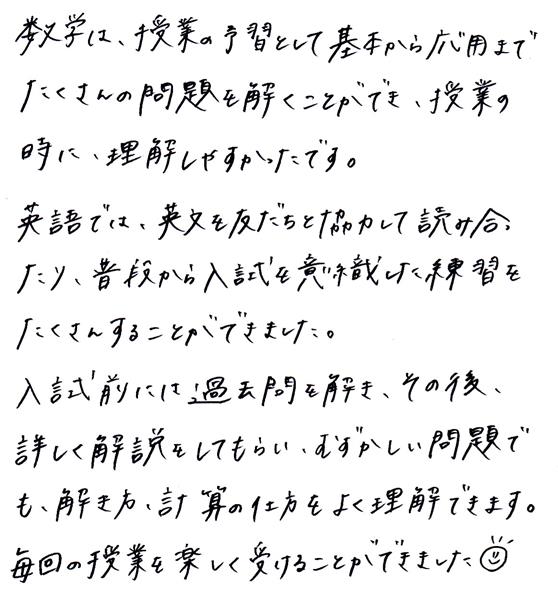 数学は、授業の予習として基本から応用まで
たくさんの問題を解くことができ、授業の
時に、理解しやすかったです。
英語では、英文を友だちと協力して読み合っ
たり、普段から入試を意識した練習を
たくさんすることができました。
入試前には過去問を解き、その後、
詳しく解説をしてもらい、むずかしい問題で
も、解き方、計算の仕方をよく理解できます。
毎回の授業を楽しく受けることができました